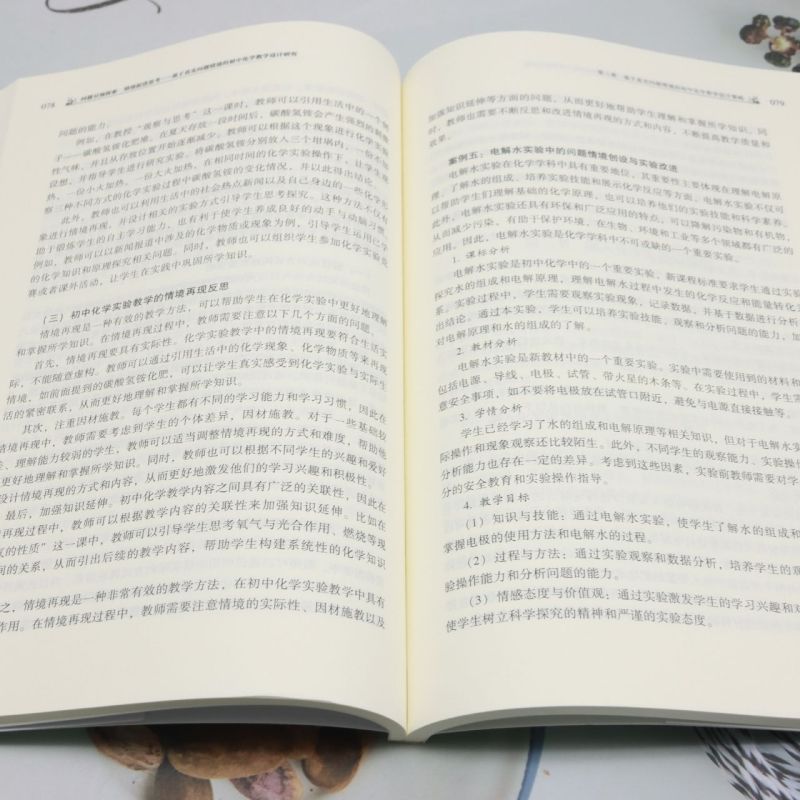 078
问题的能力。
例如，在教授“观察与思考”这一课时，教师可以引用生活中的一个例
子——碳酸氢铵化肥难。在夏天存放一段时间后，碳酸氢铵会产生强烈的刺激
性气味，并且从存放位置开始逐渐减少。教师可以根据这个现象进行化学实验
设想，并指导学生进行研究实验。将碳酸氢铵分别放入三个坩埚内，一份不加
热、一份小火加热、一份大火加热，在相同时间的化学实验操作下，让学生观
察三种不同方式的化学实验过程中碳酸氢铵的变化情况，并以此得出结论。
此外，教师也可以利用生活中的社会热点新闻以及自己身边的一些化学现
象进行情境再现，并设计相关的实验方式引导学生思考探究。这种方法不仅有
助于锻炼学生的自主学习能力，也有利于使学生养成良好的动手与动脑习惯。
例如，教师可以以新闻报道中涉及的化学物质或现象为例，引导学生运用已学
的化学知识和原理探究相关问题。同时，教师也可以组织学生参加化学实验竞
赛或者课外活动，让学生在实践中巩固所学知识。
（三）初中化学实验教学的情境再现反思
情境再现是一种有效的教学方法，可以帮助学生在化学实验中更好地理解
和掌握所学知识。在情境再现过程中，教师需要注意以下几个方面的问题。
首先，情境再现要具有实际性。化学实验教学中的情境再现要符合生活实
际，不能随意虚构。教师可以通过引用生活中的化学现象、化学物质等来再现
情境，如前面提到的碳酸氢铵化肥，可以让学生真实感受到化学实验与实际生
活的紧密联系，从而更好地理解和掌握所学知识。
其次，注重因材施教。每个学生都有不同的学习能力和学习习惯，因此在
情境再现中，教师需要考虑到学生的个体差异，因材施教。对于一些基础较
、理解能力较弱的学生，教师可以适当调整情境再现的方式和难度，帮助他
更好地理解和掌握所学知识。同时，教师也可以根据不同学生的兴趣和爱好
设计情境再现的方式和内容，从而更好地激发他们的学习兴趣和积极性。
最后，加强知识延伸。初中化学教学内容之间具有广泛的关联性，因此在
再现过程中，教师可以根据教学内容的关联性来加强知识延伸。比如在
气的性质”这一课中，教师可以引导学生思考氧气与光合作用、燃烧等现
间的关系，从而引出后续的教学内容，帮助学生构建系统性的化学知识
之，情境再现是一种非常有效的教学方法，在初中化学实验教学中具有
作用。在情境再现过程中，教师需要注意情境的实际性、因材施教以及
079
加强知识延伸等方面的问题，从而更好地帮助学生理解和掌握所学知识。同
时，教师也需要不断反思和改进情境再现的方式和内容，不断提高教学质量和
效果。
案例五：电解水实验中的问题情境创设与实验改进
电解水实验在化学学科中具有重要地位，其重要性主要体现在理解电解原
理、了解水的组成、培养实验技能和展示化学反应等方面。电解水实验不仅可
以帮助学生们理解基础的化学原理，也可以培养他们的实验技能和科学素养。
此外，电解水实验还具有环保和广泛应用的特点，可以降解污染物和有机物，
从而减少污染，有助于保护环境，在生物、环境和工业等多个领域都有广泛的
应用。因此，电解水实验是化学学科中不可或缺的一个重要实验。
1. 课标分析
电解水实验是初中化学中的一个重要实验，新课程标准要求学生通过实验
探究水的组成和电解原理，理解电解水过程中发生的化学反应和能量转化关
系。实验过程中，学生需要观察实验现象，记录数据，并基于数据进行分析
出结论。通过本实验，学生可以培养实验技能、观察和分析问题的能力，加
对电解原理和水的组成的了解。
2. 教材分析
电解水实验是新教材中的一个重要实验。实验中需要使用到的材料和
包括电源、导线、电极、试管、带火星的木条等。在实验过程中，学生需
意安全事项，如不要将电极放在试管口附近，避免与电源直接接触等。
3. 学情分析
学生已经学习了水的组成和电解原理等相关知识，但对于电解水实
际操作和现象观察还比较陌生。此外，不同学生的观察能力、实验操作
分析能力也存在一定的差异。考虑到这些因素，实验前教师需要对学
分的安全教育和实验操作指导。
4. 教学目标
（1）知识与技能：通过电解水实验，使学生了解水的组成和
掌握电极的使用方法和电解水的过程。
（2）过程与方法：通过实验观察和数据分析，培养学生的观
验操作能力和分析问题的能力。
（3）情感态度与价值观：通过实验激发学生的学习兴趣和对
使学生树立科学探究的精神和严谨的实验态度。